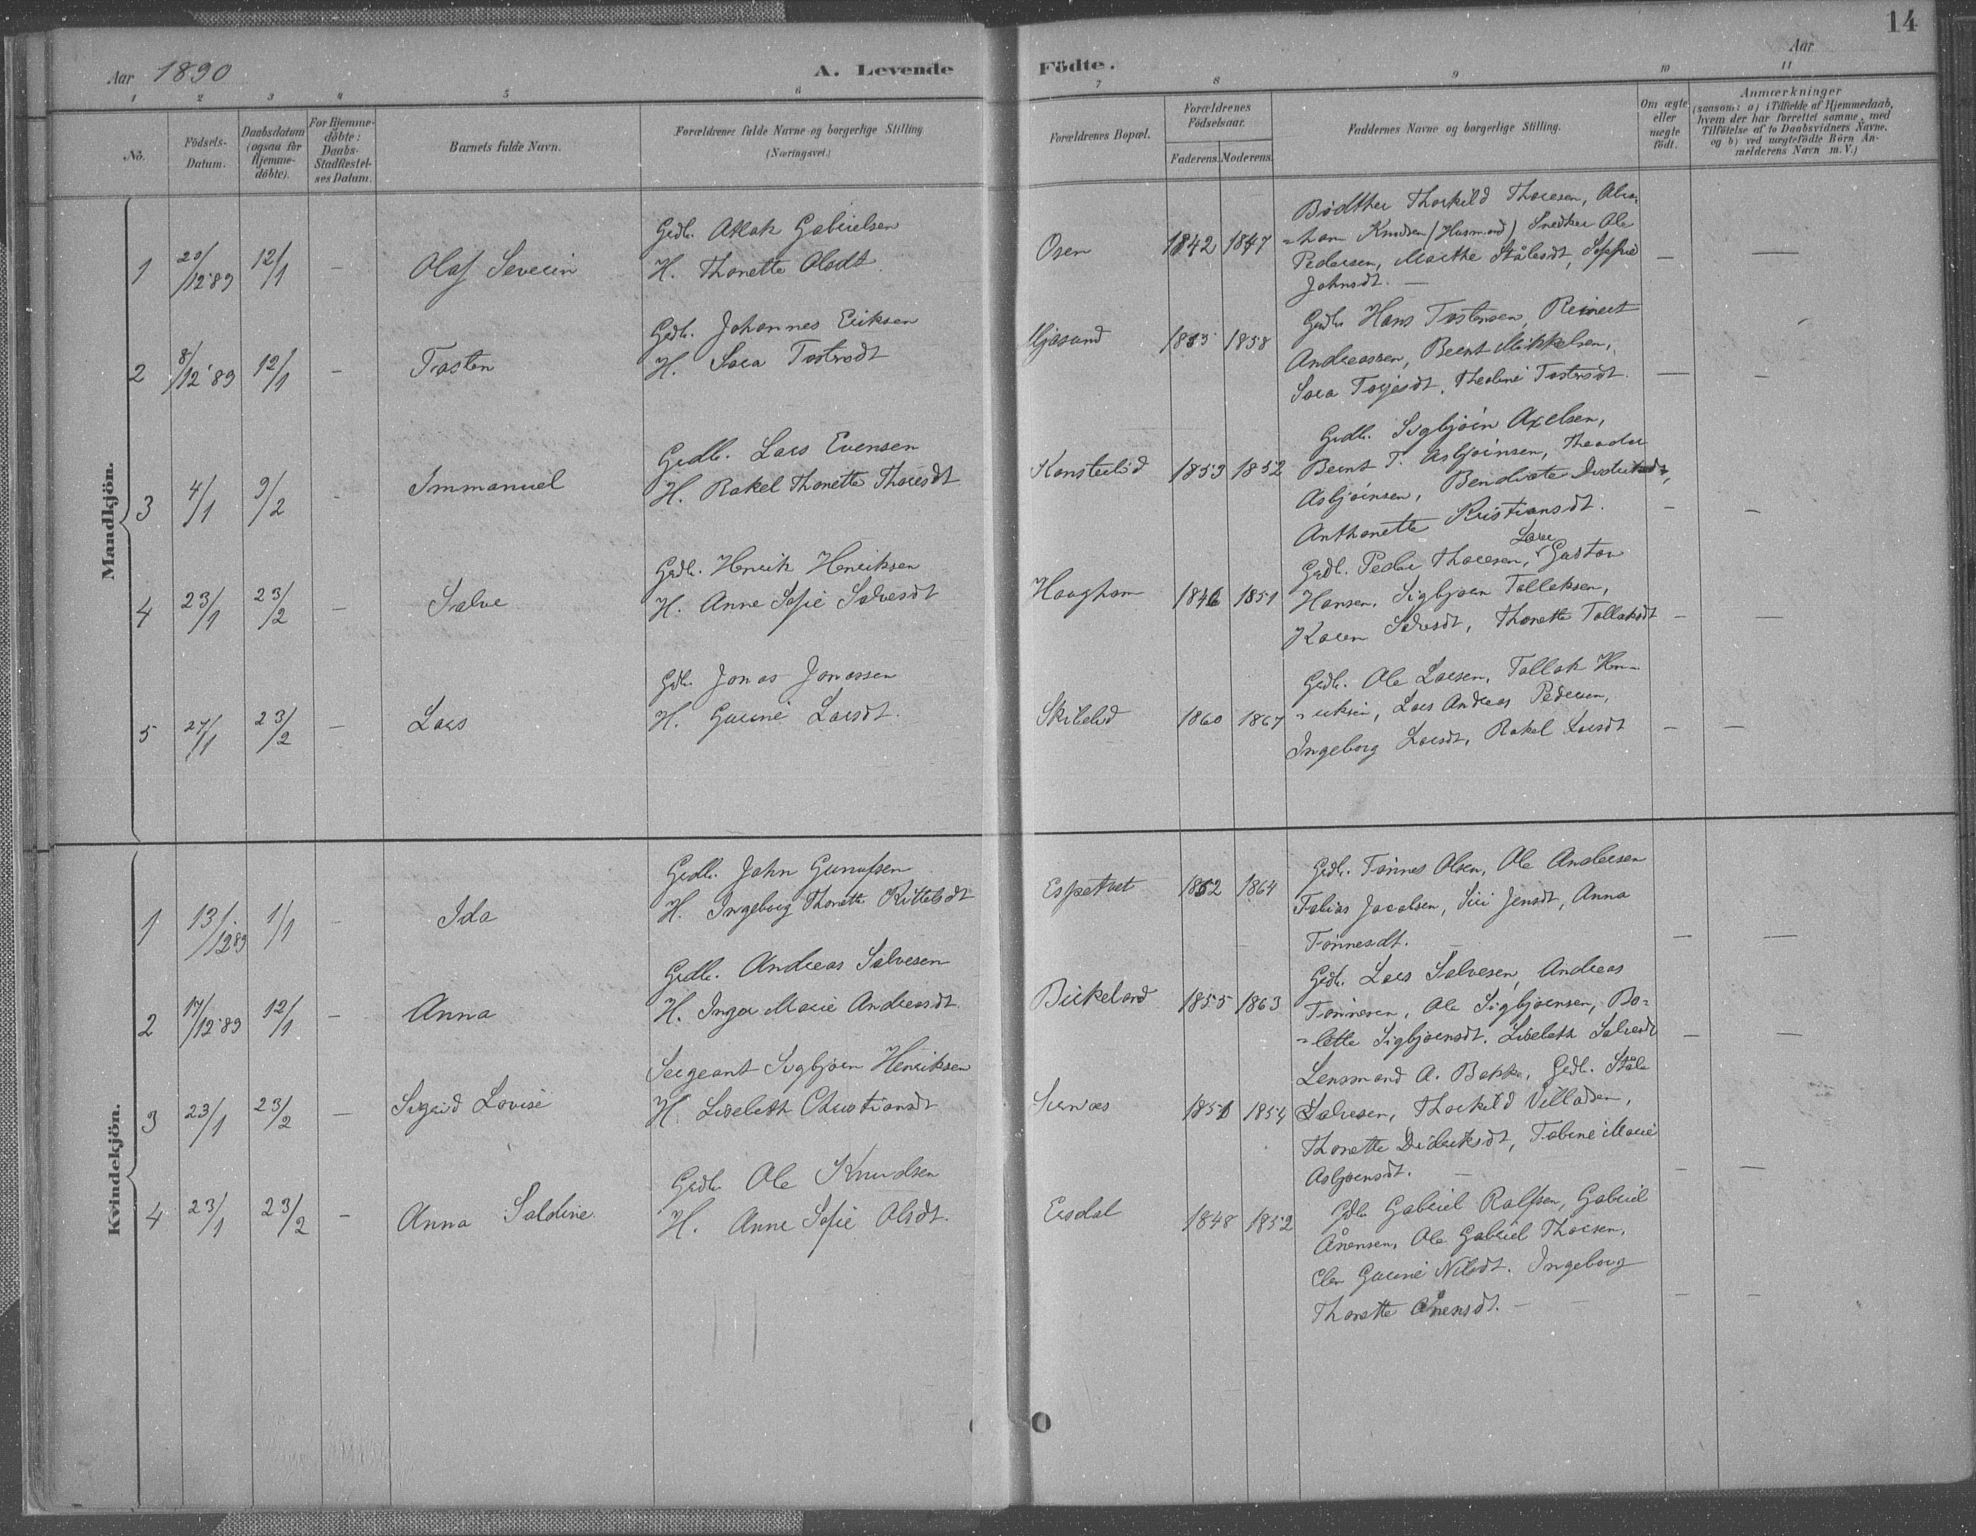 14
Aar 1890
A. Levende
Födte.
Aar
1 2 3 4 5 6 7 8 9 10 11
No.
Födsels-Datum.
Daabsdatum (ogsaa for Hjemme-döbte).
For Hjemme-döbte: Daabs-Stadfæstel-ses Datum.
Barnets fulde Navn.
Forældrenes fulde Navne og borgerlige Stilling
(Næringsvei.)
Forældrenes Bopæl.
Forældrenes Födselsaar.
Faderens. Moderens.
Faddernes Navne og borgerlige Stilling.
Om ægte eller uægte födt.
Anmærkninger
(saasom: a) i Tilfælde af Hjemmedaab,
hvem der har forrettet samme, med
Tilföielse af to Daabsvidners Navne.
og b) ved uægtefödte Börn An-
melderens Navn m. V.)
Mandkjön.
1 29/12 89 12/1 — Olaf Severin
Grdb. Aslak Gabrielsen
H. Thonette Olsdt.
Osen 1842 1847
Bødtker Thorkild Thoresen, Abra-
-ham Knudsen (Husmand) Snedker Ole
Pedersen, Marthe Ståles dt, Sophie
Johnsdt. —
2 8/12 89 12/1 — Tosten
Grdb. Johannes Eriksen
H. Sara Tostensdt
1858
Grdb. Hans Tostensen, Reinert
Andreassen, Bernt Mikkelsen,
Sara Torjesdt, Theoline Tostensdt.
3 4/1 9/2 - Immanuel
Grdb. Lars Evensen
H. Rakel Thonette Thoresdt
Konsterlid 1853 1852
Grdb. Sigbjørn Axelsen,
Bernt T. Asbjørnsen, Theodor
Asbjørnsen, Bendicte
Anthonette Kristiansdt.
4 23/1 23/2 — Salve
Grdb. Henrik Henriksen
H. Anne Sofie Salvesdt
Haughom 1846 1851
Grdb. Peder Thoresen, Gustav
Hansen, Sigbjørn Tollaksen,
Karen Salvesdt, Thonette Tollaksdt
5 27/1 23/2 — Lars
Grdb. Jonas Jonassen
H. Gurine Larsdt.
Skibelid 1860 1867
Grdb. Ole Larsen, Tollak Hen-
-riksen, Lars Andreas Pedersen,
Ingeborg Larsdt, Rakel Larsdt
Kvindekjön.
1 13/12 89 1/1 - Ida
Grdb. John Gunufsen
H. Ingeborg Thonette Kittelsdt
Espetvet 1852 1864
Grdb. Tønnes Olsen, Ole Andersen
Tobias Jacobsen, Siri Jensdt, Anna
Tønnesdt. —
2 17/12 89 12/1 — Anna
Grdb. Andreas Salvesen
H. Inger Marie Andreasdt.
Birkeland 1855 1863
Grdb. Lars Salvesen, Andreas
Tønnesen, Ole Sigbjørnsen, Bo-
-lette Sigbjørnsdt. Lisebeth Salvesdt
3 23/1 23/2 — Sigrid Lovise
Sergeant Sigbjørn Henriksen
H. Lisebeth Christiansdt
Sirnæs 1851 1854
Lensmand A. Bakke, Grdb. Ståle
Salvesen, Thorkild Villadsen,
Thonette Didriksdt, Tobine Marie
Asbjørnsdt. —
4 23/1 23/2 - Anna Saldine
Grdb. Ole Knudsen
H. Anne Sofie Olsdt.
Eersdal 1848 1852
Grdb. Gabriel Rolfsen, Gabriel
Ånensen, Ole Gabriel Thorsen,
Elen Gurine Nilsdt. Ingeborg
Thonette Ånensdt. —